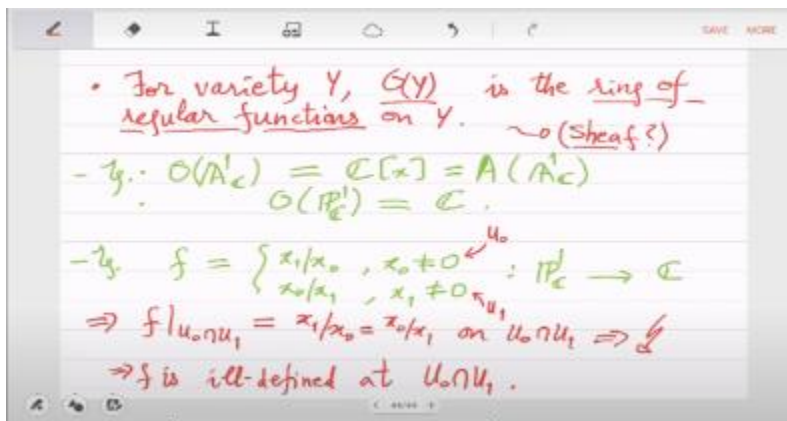 SAVE MORE
• For variety Y, O(Y) is the ring of
regular functions on Y. ~o (Sheaf?)
- Eg.: O(A¹_C) = C[x] = A(A¹_C)
O(P¹_C) = C.
- Eg. f = { x₁/x₀ , x₀ ≠ 0 ← U₀
x₀/x₁ , x₁ ≠ 0 ↖ U₁ : P¹_C → C
⇒ f|_{U₀∩U₁} = x₁/x₀ = x₀/x₁ on U₀∩U₁ ⇒ ↯
⇒ f is ill-defined at U₀∩U₁.